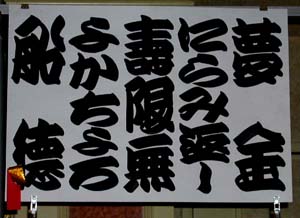 夢金
にらみ返し
壽限無
よかちょろ
船徳